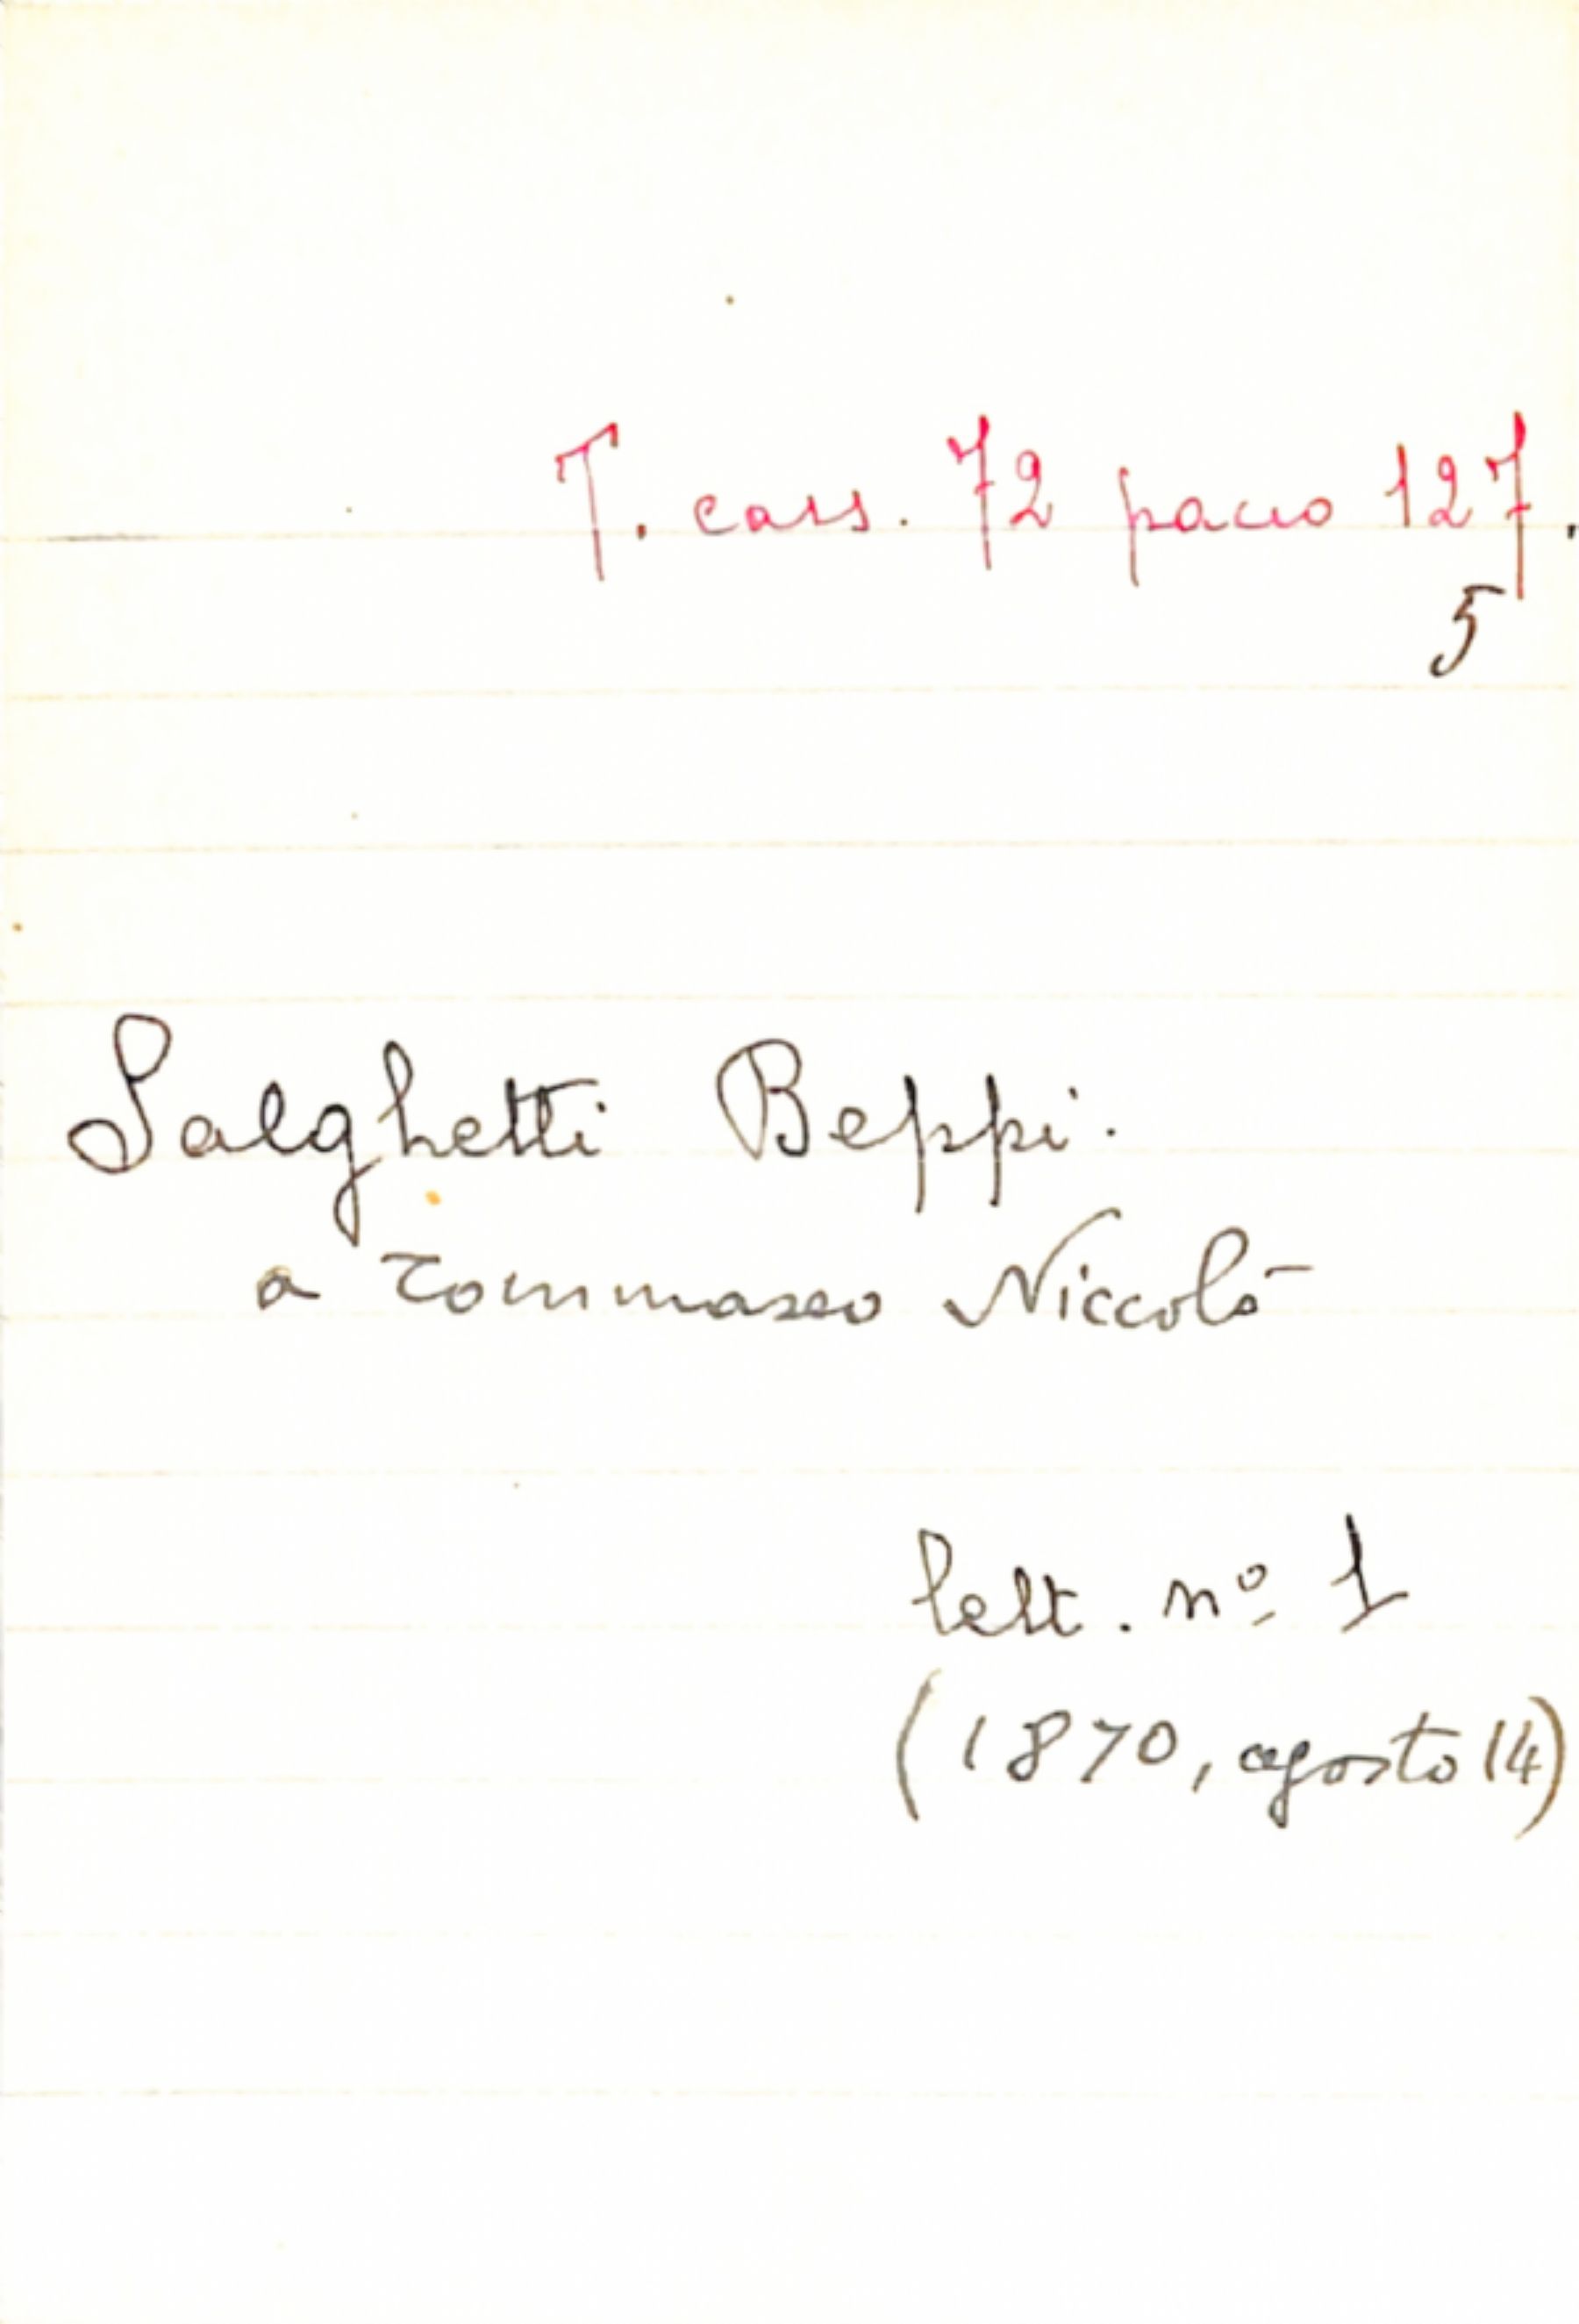 T. cass. 72 pacco 127.
5
Salghetti Beppi.
a Tommaseo Niccolò
lett. nº 1
(1870, agosto 14)